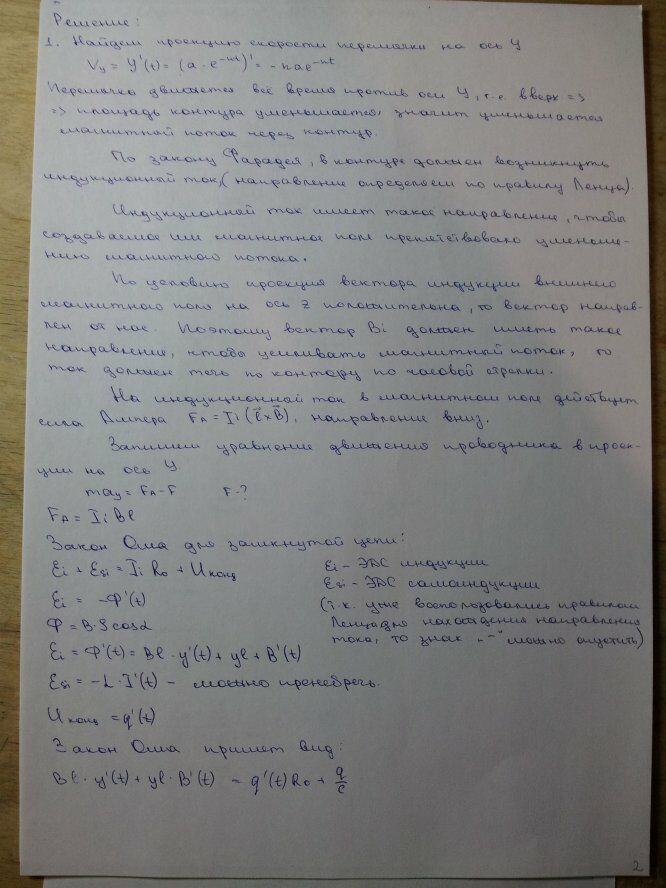 Решение:
1. Найдем проекцию скорости перемычки на ось y
Vy = y'(t) = (a · e^-nt)' = - nae^-nt
Перемычка движется всё время против оси y, т.е. вверх =>
=> площадь контура уменьшается, значит уменьшается
магнитной поток через контур.
По закону Фарадея, в контуре должен возникнуть
индукционной ток, (направление определяем по правилу Ленца).
Индукционной ток имеет такое направление, чтобы
создаваемое им магнитное поле препятствовало уменьше-
нию магнитного потока.
По условию проекция вектора индукции внешнего
магнитного поля на ось z положительна, то вектор направ-
лен от нас. Поэтому вектор Bi должен иметь такое
направление, чтобы усиливать магнитной поток, то
ток должен течь по контору по часовой стрелки.
На индукционной ток в магнитном поле действует
сила Ампера FA = Ii (l⃗ × B⃗), направление вниз.
Запишем уравнение движения проводника в проек-
ции на ось y
may = FA - F F-?
FA = Ii Bl
Закон Ома для замкнутой цепи:
Ei + Esi = Ii R0 + Uконд Ei - ЭДС индукции
Esi - ЭДС самоиндукции
Ei = -Ф'(t) (т.к. уже воспользовались правилом
Ф = B·S cosα Ленца для нахождения направления
тока, то знак „-" можно опустить)
Ei = Ф'(t) = Bl · y'(t) + yl + B'(t)
Esi = -L · I'(t) - можно пренебречь.
Uконд = q'(t)
Закон Ома примет вид:
Bl · y'(t) + yl · B'(t) = q'(t) R0 + q/c
2